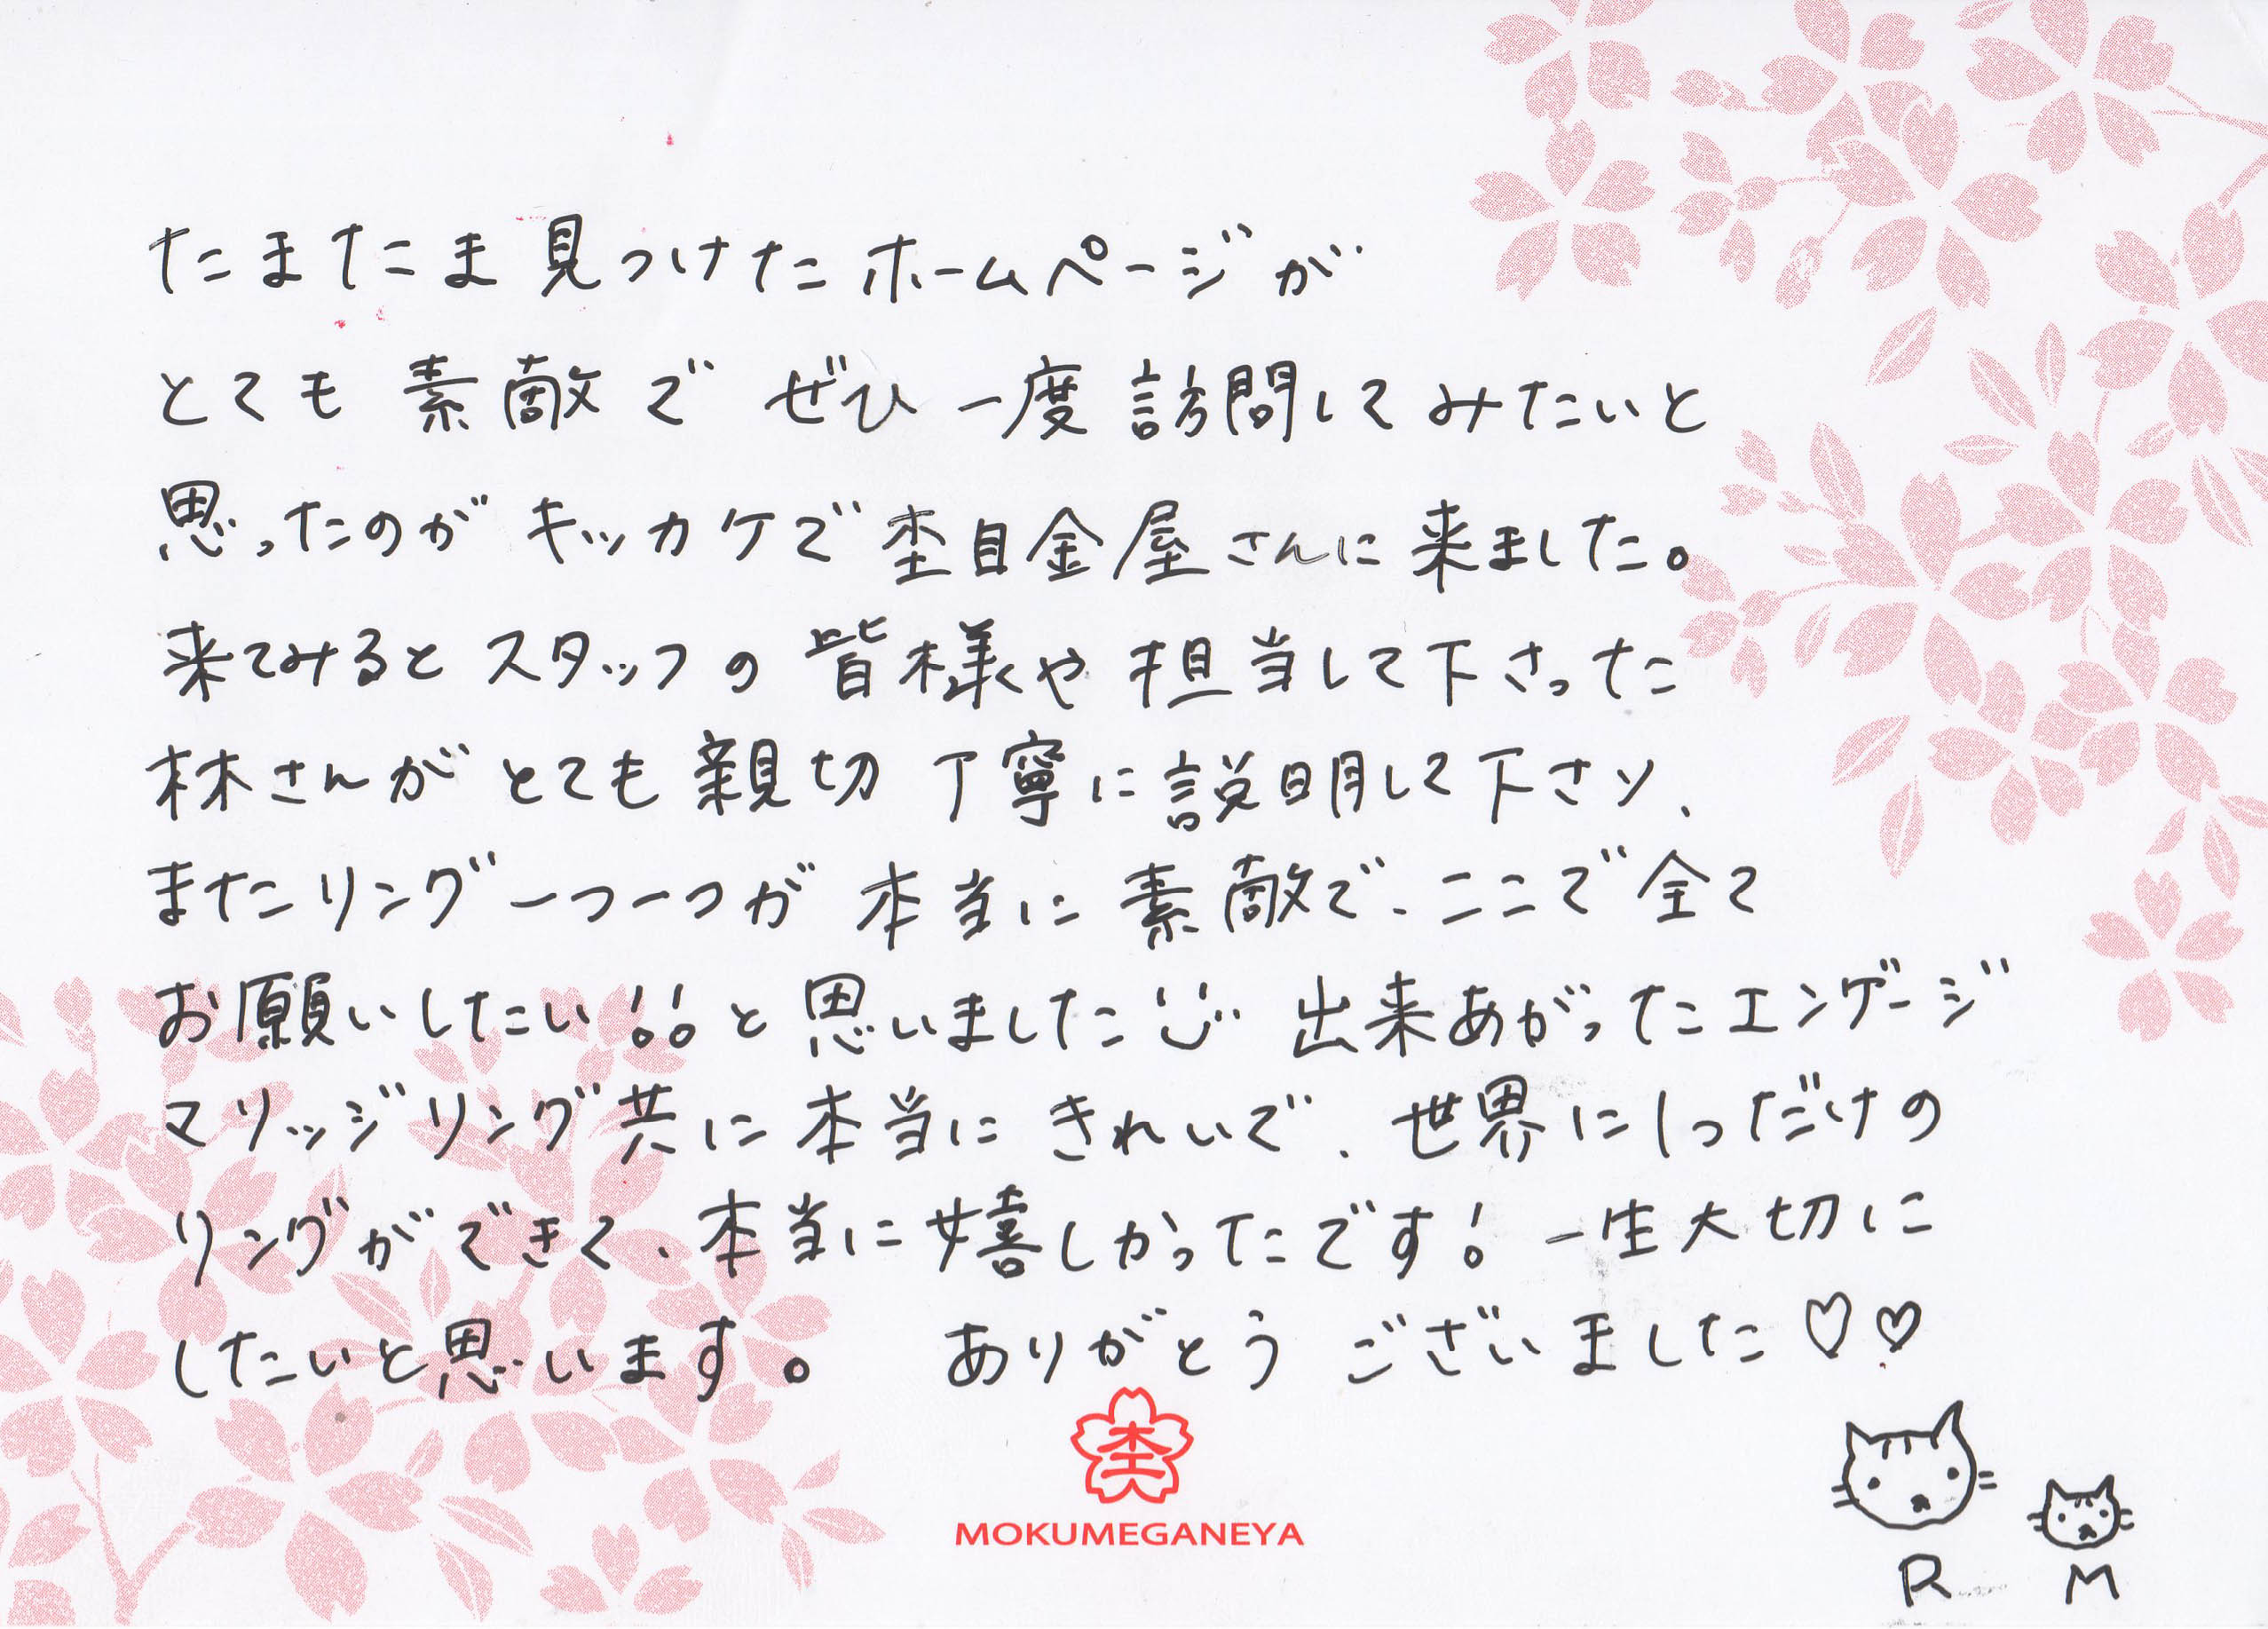 たまたま見つけたホームページが
とても素敵で ぜひ一度訪問してみたいと
思ったのがキッカケで杢目金屋さんに来ました。
来てみるとスタッフの皆様や担当して下さった
林さんがとても親切丁寧に説明して下さり、
またリング一つ一つが本当に素敵で、ここで全て
お願いしたい!!と思いました 出来あがったエンゲージ
マリッジリング共に本当にきれいで、世界に1つだけの
リングができて、本当に嬉しかったです!一生大切に
したいと思います。 ありがとうございました♡♡
杢
MOKUMEGANEYA
R M